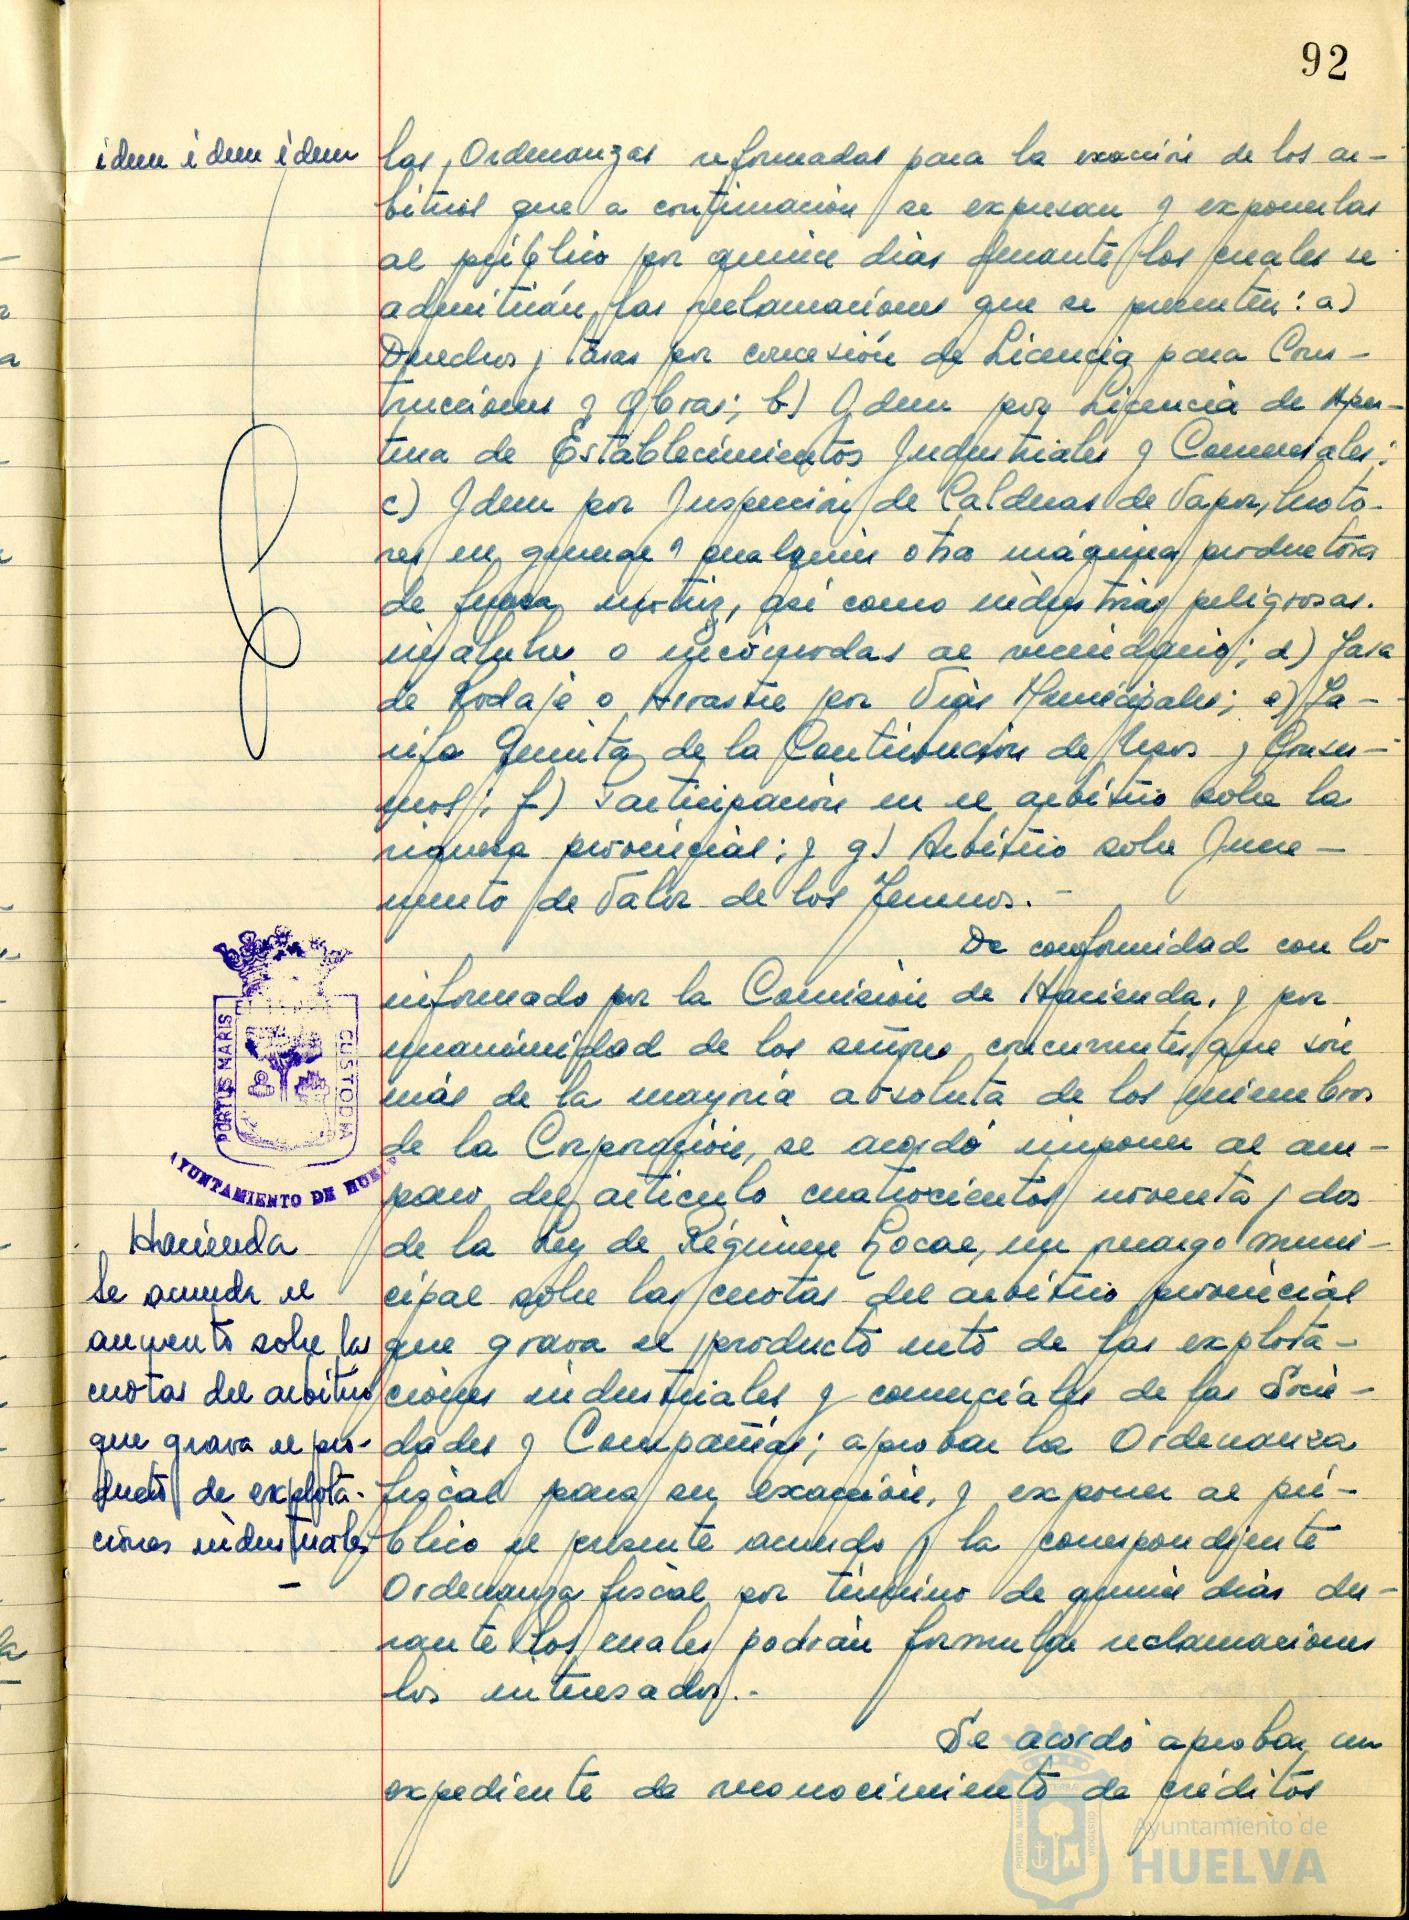 92
idem idem idem
las, Ordenanzas reformadas para la exacción de los ar-
bitrios que a continuación se expresan y exponerlas
al público por quince días durante los cuales se
admitirán, las reclamaciones que se presenten: a)
Derechos y tasas por concesión de Licencia para Cons-
trucciones y Obras; b) Idem por Licencia de Aper-
tura de Establecimientos Industriales y Comerciales;
c) Idem por Inspección de Calderas de Vapor, Moto-
res en general y cualquier otra máquina productora
de fuerza motriz, así como industrias peligrosas.
insalubres o incómodas al vecindario; d) Tasa
de Rodaje o Arrastre por Vías Municipales; e) Ta-
rifa Quinta de la Contribución de Usos y Consu-
mos; f) Participación en el arbitrio sobre la
riqueza provincial; y g) Arbitrio sobre Incre-
mento de Valor de los Terrenos.-
De conformidad con lo
informado por la Comisión de Hacienda, y por
unanimidad de los señores concurrentes, que son
más de la mayoría absoluta de los miembros
de la Corporación, se acordó imponer al am-
paro del artículo cuatrocientos noventa y dos
de la Ley de Régimen Local, un recargo muni-
cipal sobre las cuotas del arbitrio provincial
que grava el producto neto de las explota-
ciones industriales y comerciales de las Socie-
dades y Compañías; aprobar la Ordenanza
fiscal para su exacción, y exponer al pú-
blico el presente acuerdo y la correspondiente
Ordenanza fiscal por término de quince días du-
rante los cuales podrán formular reclamaciones
los interesados.-
Se acordó aprobar un
expediente de reconocimiento de créditos
PORTUS MARIS
CUSTODIA
AYUNTAMIENTO DE HUELVA
Hacienda
Se acuerda el
aumento sobre las
cuotas del arbitrio
que grava el pro-
ducto de explota-
ciones industriales
-
Ayuntamiento de
HUELVA